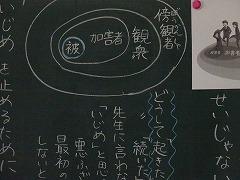 せいじゃない
傍観者
観衆
加害者
被
どうして「起きた」
「続いた
先生に言わな
「いじめ」と思
悪ふざ
最初の
しないと
いじめを止めるために